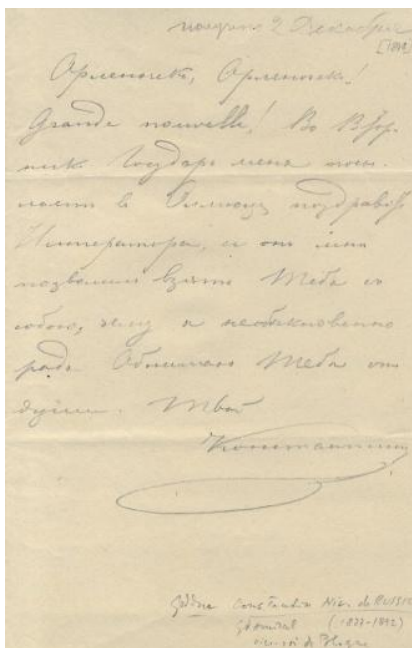 получено 2 Декабря
[1848]
Орленочекъ, Орленочекъ!
Grande nouvelle! Во Втор-
никъ Государь меня посы-
лаетъ в Ольмюцъ поздравить
Императора, и он мне
позволилъ взять Тебя съ
собою, чему я необыкновенно
радъ. Обнимаю Тебя отъ
души. Твой
Константинъ
Constantin Nic. de Russie
(1827-1892)